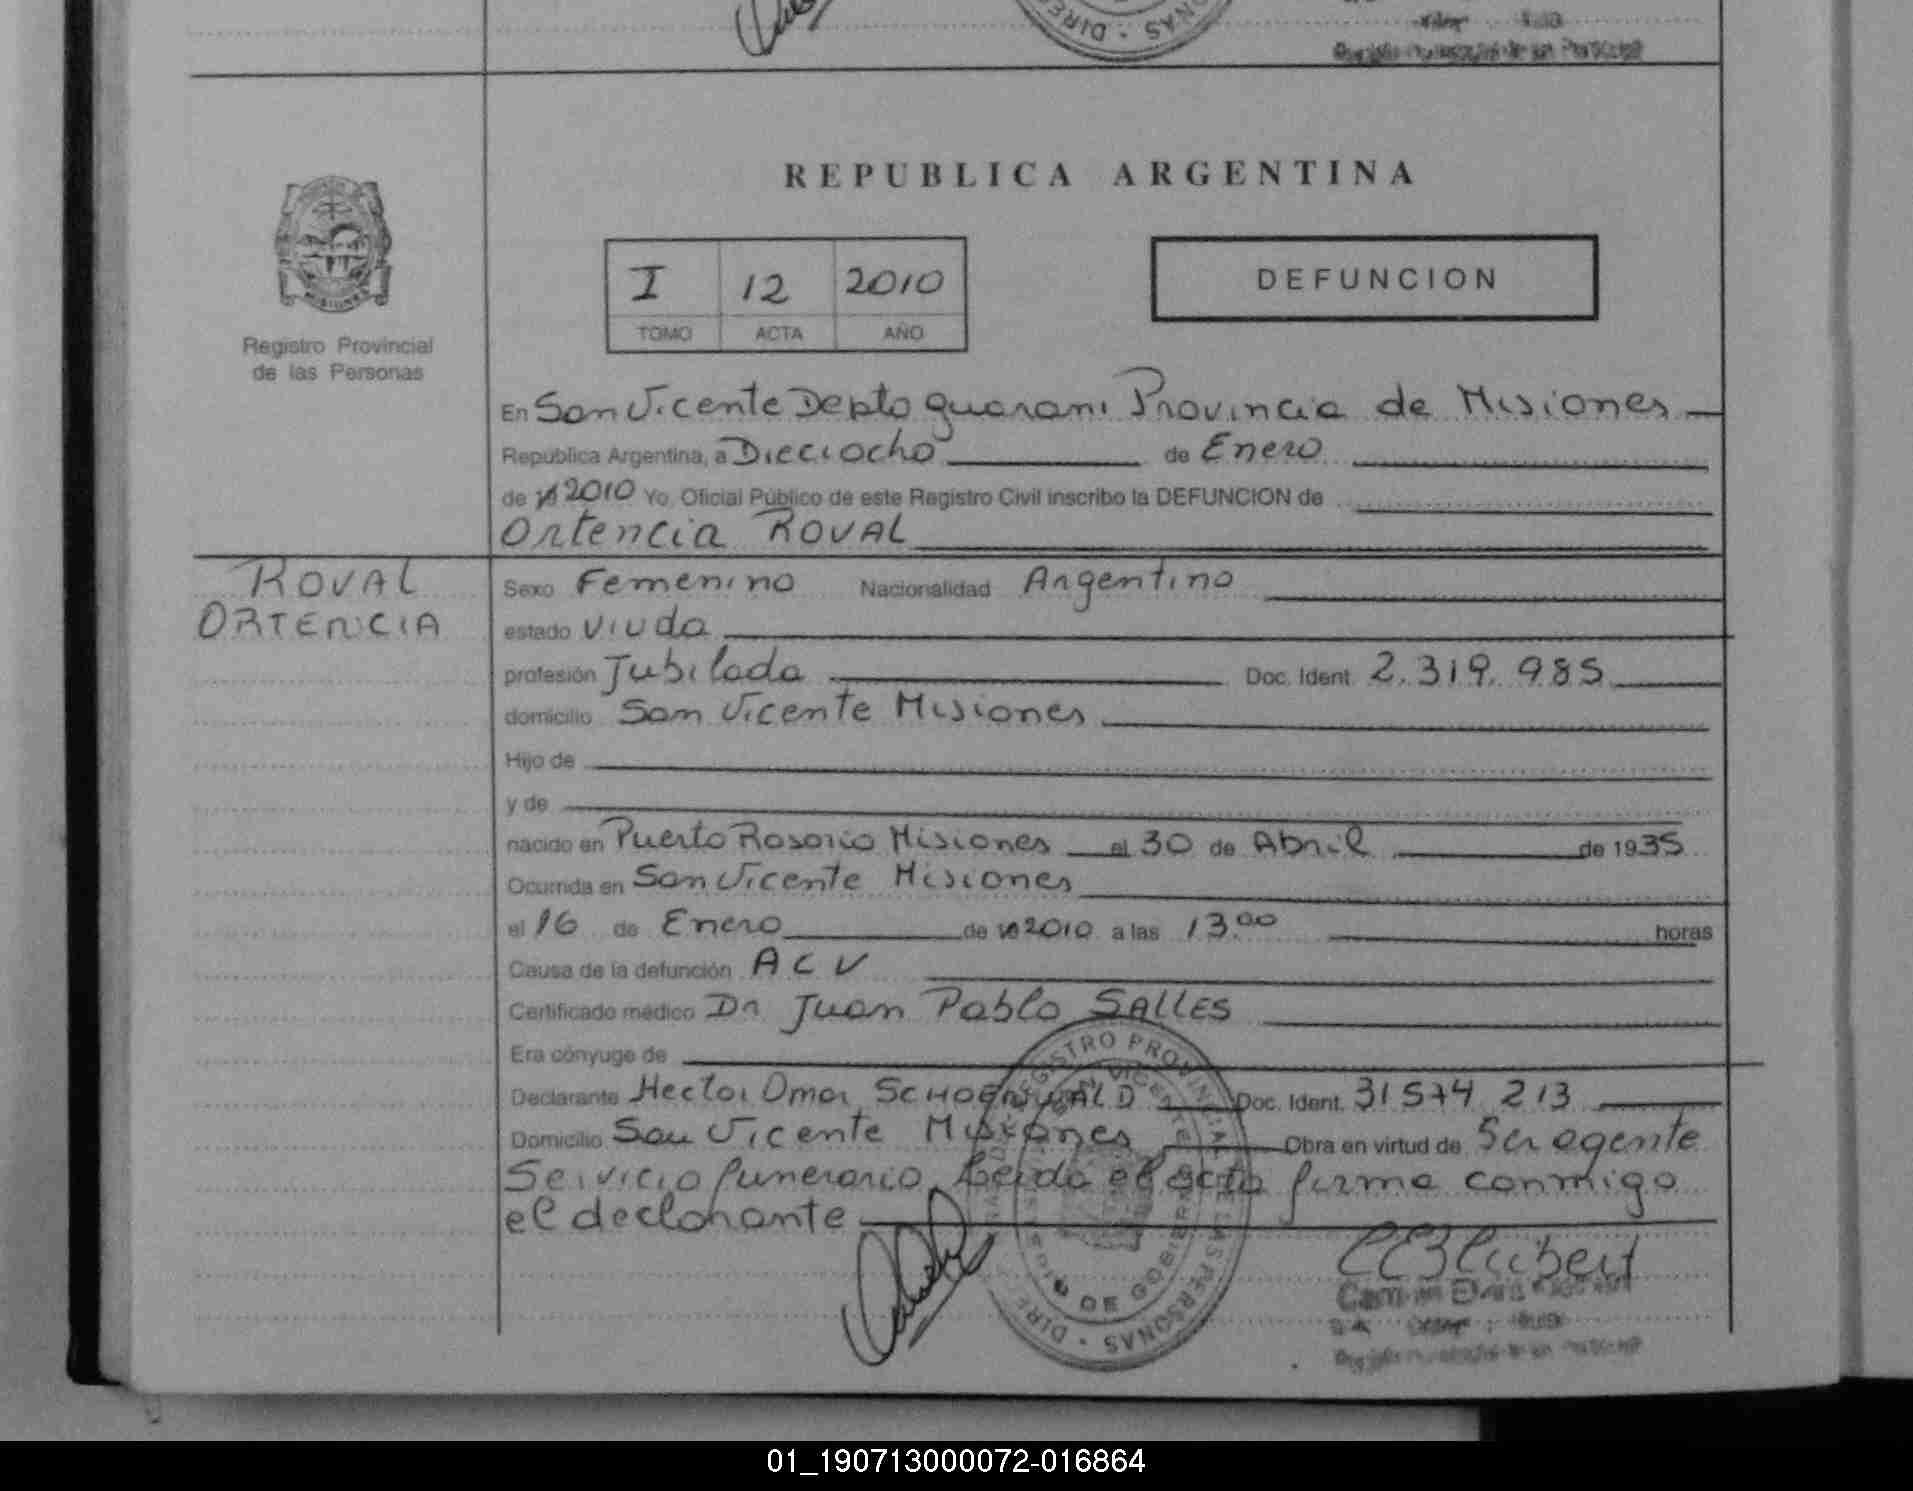 REPUBLICA ARGENTINA
I 12 2010
TOMO ACTA AÑO
DEFUNCION
MISIONES
Registro Provincial
de las Personas
En San Vicente Depto guarani Provincia de Misiones
Republica Argentina, a Dieciocho de Enero
de 2010 Yo, Oficial Público de este Registro Civil inscribo la DEFUNCION de
Ortencia ROVAL
ROVAL
ORTENCIA
Sexo Femenino Nacionalidad Argentino
estado Viuda
profesión Jubilada Doc. Ident. 2.319.985
domicilio San Vicente Misiones
Hijo de
y de
nacido en Puerto Rosario Misiones el 30 de Abril de 1935
Ocurrida en San Vicente Misiones
el 16 de Enero de 2010 a las 13.00 horas
Causa de la defunción ACV
Certificado médico Dr Juan Pablo SALLES
Era cónyuge de
Declarante Hector Omar SCHOENWALD Doc. Ident. 31574 213
Domicilio San Vicente Misiones Obra en virtud de Ser agente
Servicio funerario, Leida el acta firma conmigo
el declarante
REGISTRO PROVINCIAL DE LAS PERSONAS
SAN VICENTE
01_190713000072-016864